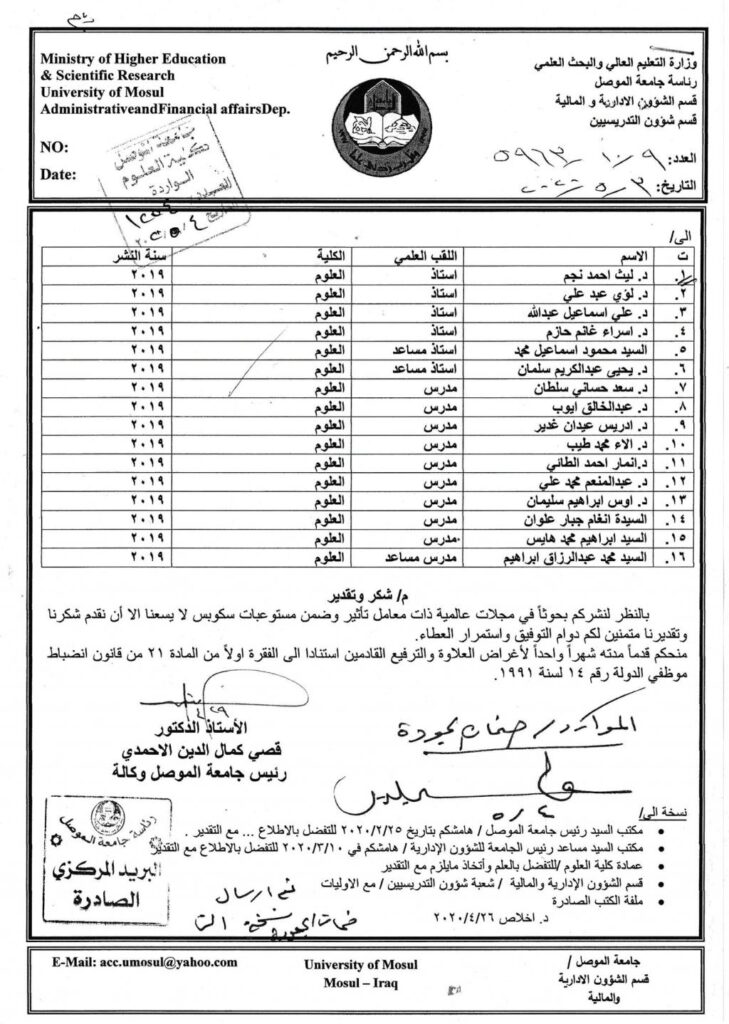 بسم الله الرحمن الرحيم
Ministry of Higher Education
& Scientific Research
University of Mosul
AdministrativeandFinancial affairsDep.
NO:
Date:
وزارة التعليم العالي والبحث العلمي
رئاسة جامعة الموصل
قسم الشؤون الادارية و المالية
قسم شؤون التدريسيين
العدد: ٩/١٠/٥٩٦٣
التاريخ: ٢٠٢٠/٥/٣
الواردة
الى/
ت الاسم اللقب العلمي الكلية سنة النشر
١. د. ليث احمد نجم استاذ العلوم ٢٠١٩
٢. د. لؤي عبد علي استاذ العلوم ٢٠١٩
٣. د. علي اسماعيل عبدالله استاذ العلوم ٢٠١٩
٤. د. اسراء غانم حازم استاذ العلوم ٢٠١٩
٥. السيد محمود اسماعيل محمد استاذ مساعد العلوم ٢٠١٩
٦. د. يحيى عبدالكريم سلمان استاذ مساعد العلوم ٢٠١٩
٧. د. سعد حساني سلطان مدرس العلوم ٢٠١٩
٨. د. عبدالخالق ايوب مدرس العلوم ٢٠١٩
٩. د. ادريس عيدان غدير مدرس العلوم ٢٠١٩
١٠. د. الاء محمد طيب مدرس العلوم ٢٠١٩
١١. د.انمار احمد الطائي مدرس العلوم ٢٠١٩
١٢. د. عبدالمنعم محمد علي مدرس العلوم ٢٠١٩
١٣. د. اوس ابراهيم سليمان مدرس العلوم ٢٠١٩
١٤. السيدة انغام جبار علوان مدرس العلوم ٢٠١٩
١٥. السيد ابراهيم محمد هايس مدرس العلوم ٢٠١٩
١٦. السيد محمد عبدالرزاق ابراهيم مدرس مساعد العلوم ٢٠١٩
م/ شكر وتقدير
بالنظر لنشركم بحوثاً في مجلات عالمية ذات معامل تأثير وضمن مستوعبات سكوبس لا يسعنا الا أن نقدم شكرنا
وتقديرنا متمنين لكم دوام التوفيق واستمرار العطاء.
منحكم قدماً مدته شهراً واحداً لأغراض العلاوة والترفيع القادمين استنادا الى الفقرة اولاً من المادة ٢١ من قانون انضباط
موظفي الدولة رقم ١٤ لسنة ١٩٩١.
٤/٢٩
الأستاذ الدكتور
قصي كمال الدين الاحمدي
رئيس جامعة الموصل وكالة
ضمان الجودة
٥/٤
نسخة الى/
• مكتب السيد رئيس جامعة الموصل / هامشكم بتاريخ ٢٠٢٠/٢/٢٥ للتفضل بالاطلاع ... مع التقدير .
• مكتب السيد مساعد رئيس الجامعة للشؤون الإدارية / هامشكم في ٢٠٢٠/٣/١٠ للتفضل بالاطلاع مع التقدير
• عمادة كلية العلوم /للتفضل بالعلم وأتخاذ مايلزم مع التقدير
• قسم الشؤون الإدارية والمالية / شعبة شؤون التدريسيين / مع الاوليات
• ملفة الكتب الصادرة
د. اخلاص ٢٠٢٠/٤/٢٦
رئاسة جامعة الموصل
البريد المركزي
الصادرة
تم ارسال
نسخة
E-Mail: acc.umosul@yahoo.com
University of Mosul
Mosul – Iraq
جامعة الموصل /
قسم الشؤون الادارية
والمالية